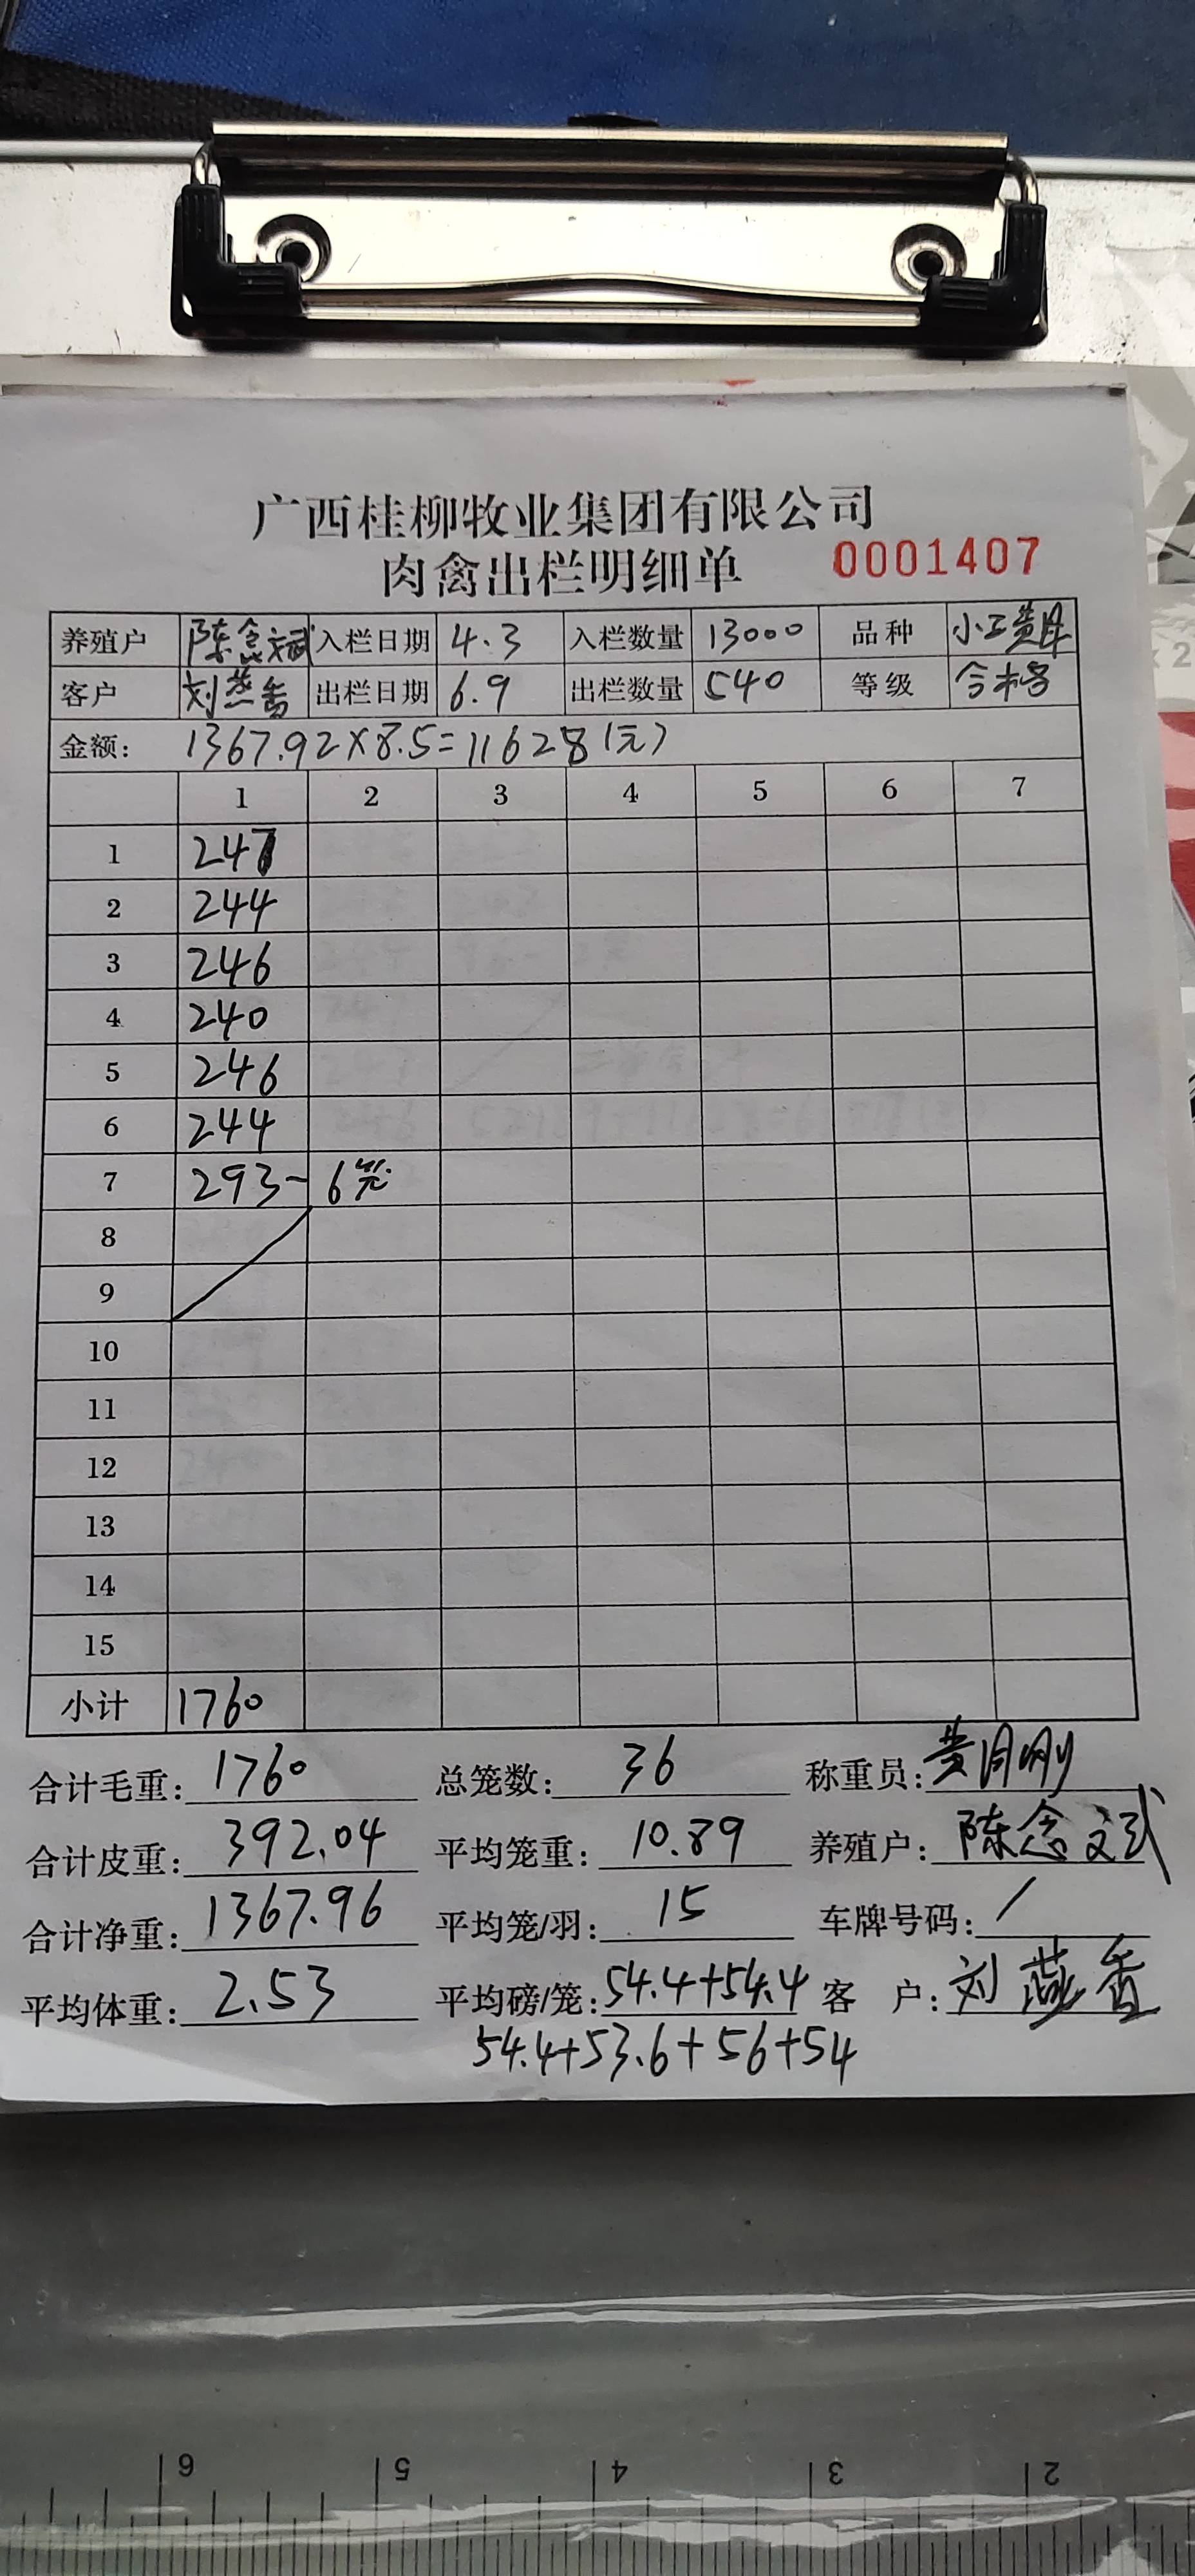 广西桂柳牧业集团有限公司
肉禽出栏明细单 0001407
养殖户 陈念斌 入栏日期 4.3 入栏数量 13000 品种 小工黄
客户 刘燕香 出栏日期 6.9 出栏数量 540 等级 合格
金额: 1367.92×8.5=11628(元)
1 2 3 4 5 6 7
1 247
2 244
3 246
4 240
5 246
6 244
7 293- 6笼
8
9
10
11
12
13
14
15
小计 1760
合计毛重: 1760 总笼数: 36 称重员: 黄月刚
合计皮重: 392.04 平均笼重: 10.89 养殖户: 陈念斌
合计净重: 1367.96 平均笼/羽: 15 车牌号码: /
平均体重: 2.53 平均磅/笼: 54.4+54.4 客 户: 刘燕香
54.4+53.6+56+54
6 5 4 3 2